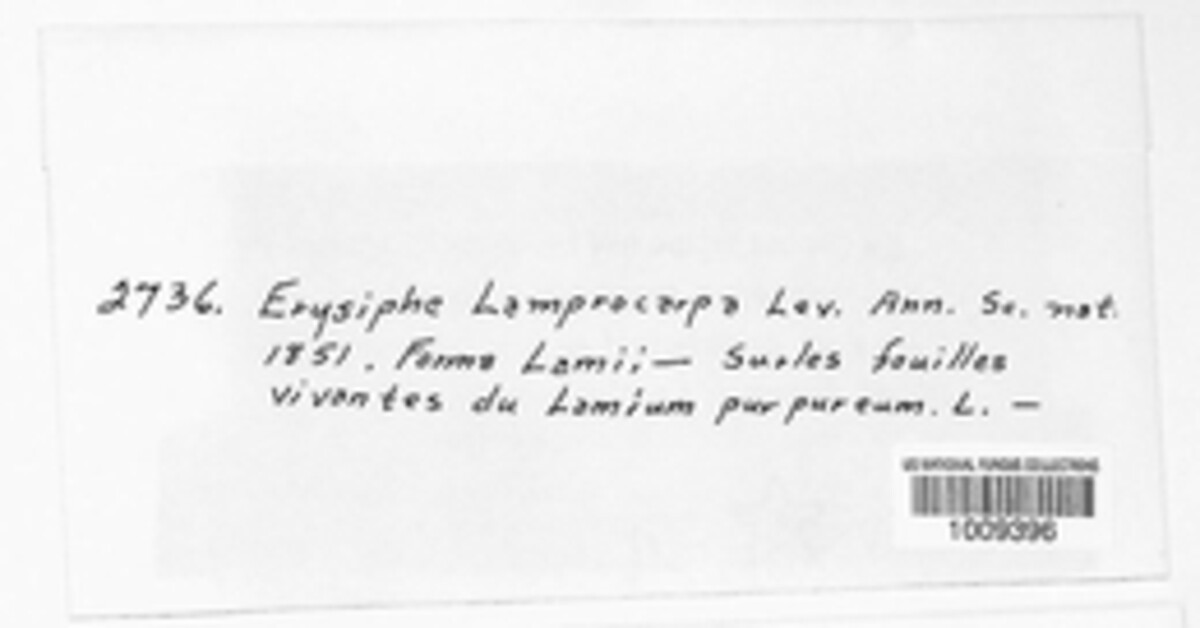 2736. Erysiphe Lamprocarpa Lev. Ann. Sc. nat.
1851. Forma Lamii — Sur les fouilles
vivantes du Lamium purpureum. L. —
US NATIONAL FUNGUS COLLECTIONS
1009396